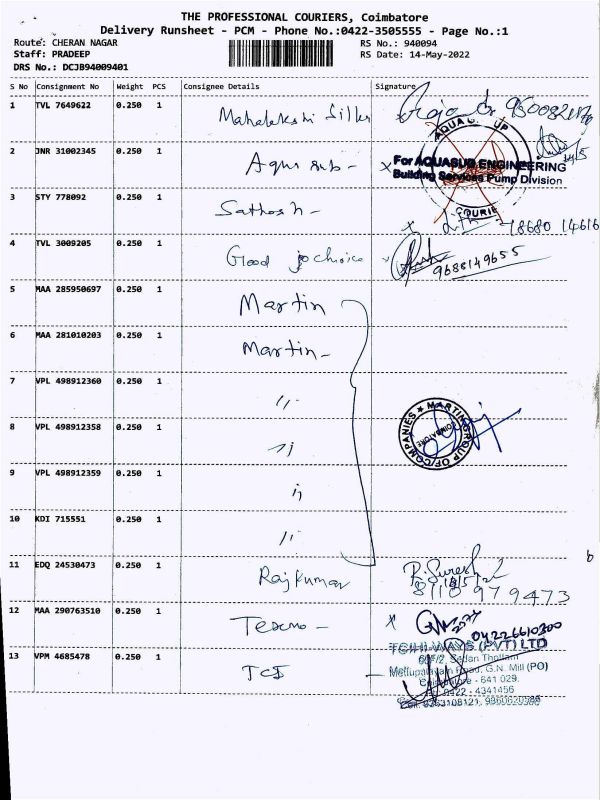 THE PROFESSIONAL COURIERS, Coimbatore
Delivery Runsheet - PCM - Phone No.:0422-3505555 - Page No.:1
Route: CHERAN NAGAR RS No.: 940094
Staff: PRADEEP RS Date: 14-May-2022
DRS No.: DCJB94009401
S No Consignment No Weight PCS Consignee Details Signature
1 TVL 7649622 0.250 1 Mahalakshi Silks
2 JNR 31002345 0.250 1 Aqua sub -
For AQUASUB ENGINEERING
Building Services Pump Division
COURIE
3 STY 778092 0.250 1 Sathosh - 18680 14616
4 TVL 3009205 0.250 1 Good jochoice 9688149655
5 MAA 285950697 0.250 1 Martin
6 MAA 281010203 0.250 1 Martin -
7 VPL 498912360 0.250 1 ,,
8 VPL 498912358 0.250 1 ,,
MARTIN GROUP OF COMPANIES
COIMBATORE
9 VPL 498912359 0.250 1 ,,
10 KDI 715551 0.250 1 ,,
11 EDQ 24530473 0.250 1 Rajkumar R. Suresh
8110979473
12 MAA 290763510 0.250 1 Texmo - x
04226610300
13 VPM 4685478 0.250 1 TCI -
TCIHI-WAYS (PVT) LTD
Mettupalayam Road, G.N. Mill (PO)
Coimbatore - 641 029.
0422 - 4341456